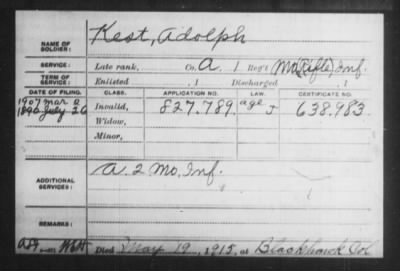 NAME OF SOLDIER: Kest, Adolph
SERVICE: Late rank, Co. A. 1 Reg't Mo (Rifle) Inf.
TERM OF SERVICE: Enlisted , 1 Discharged , 1
DATE OF FILING. CLASS. APPLICATION NO. LAW. CERTIFICATE NO.
1907 Mar
1890 July 26 Invalid, 827.789. age 638.983.
Widow,
Minor,
ADDITIONAL SERVICES: A. 2 Mo. Inf.
REMARKS:
Died May 19, 1915, at Blackhawk Col